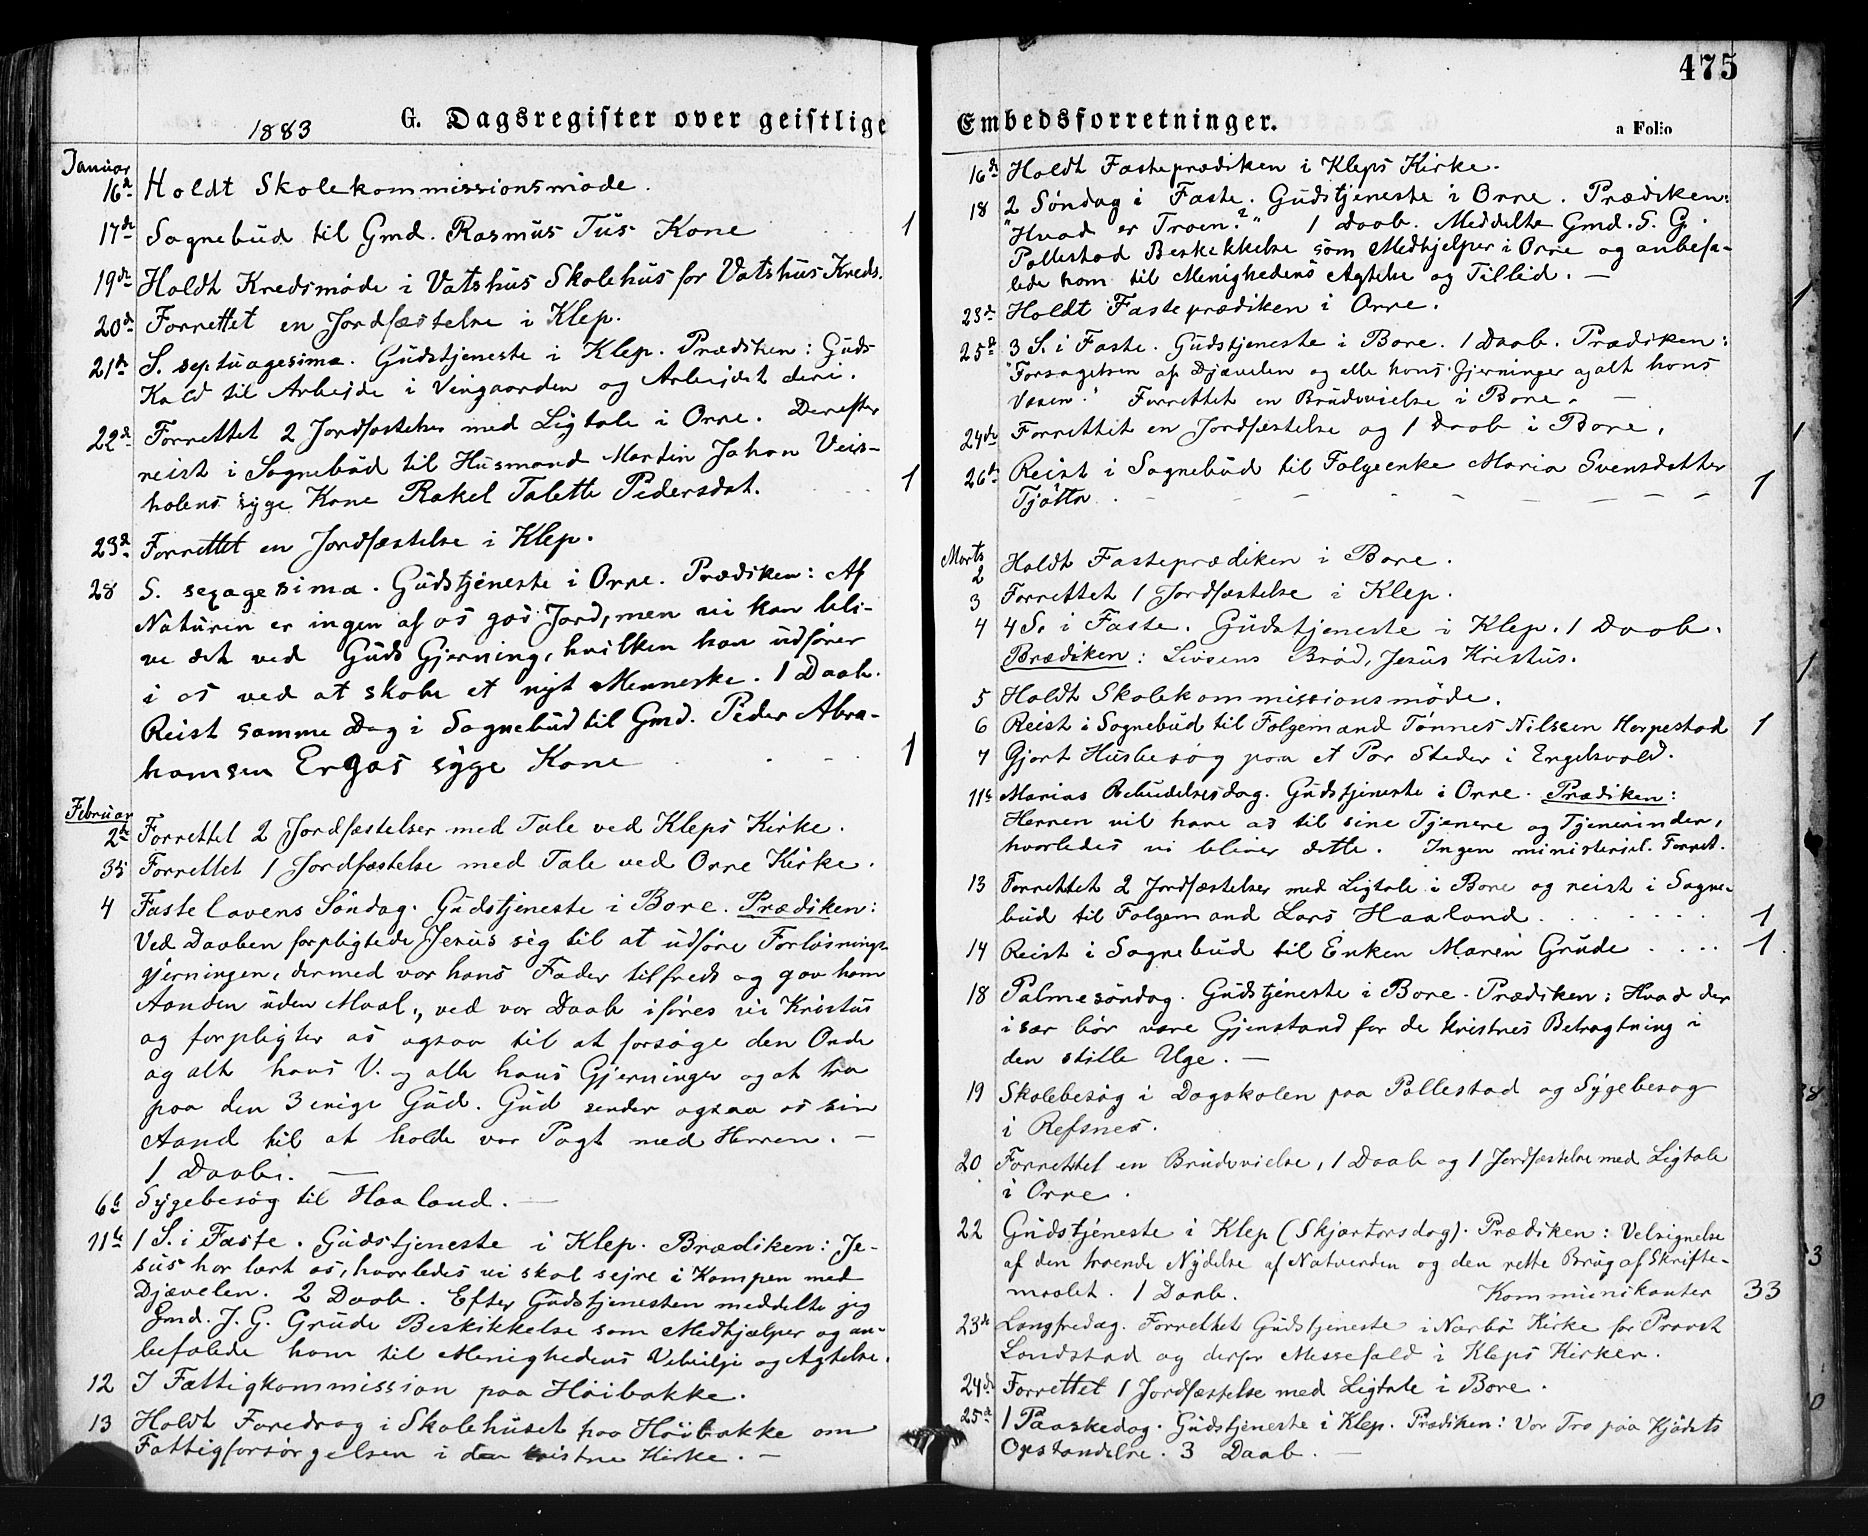 1883
G. Dagsregister over geistlige
Januar
16d Holdt Skolekommissionsmøde.
17de Sognebud til Gmd. Rasmus Tus Kone 1
19de Holdt Kredsmøde i Vatshus Skolehus for Vatshus-Kreds.
20de Forrettet en Jordfæstelse i Klep.
21de S. septuagesima. Gudstjeneste i Klep. Prædiken: Guds
Kald til Arbejde i Vingaarden og Arbejdet deri.
22de Forrettet 2 Jordfæstelser med Ligtale i Orre. Derefter
reist i Sognebud til Husmand Martin Johan Veis-
holens syge Kone Rakel Talette Pedersdat. 1
23d Forrettet en Jordfæstelse i Klep.
28 S. sexagesima. Gudstjeneste i Orre. Prædiken: Af
Naturen er ingen af os god Jord, men vi kan bli-
ve det ved Guds Gjerning, hvilken han udfører
i os ved at skabe et nyt Menneske. 1 Daab.
Reist samme Dag i Sognebud til Gmd. Peder Abra-
hamsen Ergas syge Kone 1
Februar
2de Forrettet 2 Jordfæstelser med Tale ved Kleps Kirke.
3die Forrettet 1 Jordfæstelse med Tale ved Orre Kirke.
4 Fastelavens Søndag. Gudstjeneste i Bore. Prædiken:
Ved Daaben forpligtede Jesus sig til at udføre Forløsnings-
gjerningen, dermed var hans Fader tilfreds og gav ham
Aanden uden Maal., ved vor Daab iføres vi Kristus
og forpligter os ogsaa til at forsage den Onde
og alt hans V. og alle hans Gjerninger og at tro
paa den 3 enige Gud. Gud sender ogsaa os sin
Aand til at holde vor Pagt med Herren. —
1 Daab. —
6te Sygebesøg til Haaland. —
11te 1 S. i Faste. Gudstjeneste i Klep. Prædiken: Je-
sus har lært os, hvorledes vi skal sejre i Kampen med
Djævelen. 2 Daab. Efter Gudstjenesten meddelte jeg
Gmd. J. G. Grude Beskikkelse som Medhjælper og an-
befalede ham til Menighedens Velvilje og Agtelse.
12 I Fattigkommission paa Höibakke.
13 Holdt Foredrag i Skolehuset paa Höibakke om
Fattigforsörgelsen i den kristne Kirke. —
475
Embedsforretninger.
a Folio
16de Holdt Fasteprædiken i Kleps Kirke.
18 2 Søndag i Faste. Gudstjeneste i Orre. Prædiken:
"Hvad er Troen?" 1 Daab. Meddelte Gmd. S. G.
Pollestad Beskikkelse som Medhjelper i Orre og anbefa-
lede ham til Menighedens Agtelse og Tillid. —
23d Holdt Fasteprædiken i Orre.
25d 3 S. i Faste. Gudstjeneste i Bore. 1 Daab. Prædiken:
"Forsagelsen af Djævelen og alle hans Gjerninger og alt hans
Væsen." Forrettet en Brudevielse i Bore. —
24de Forrettet en Jordfæstelse og 1 Daab i Bore.
26d Reist i Sognebud til Folgeenke Maria Svensdatter
Tjøtta. 1
Marts
2 Holdt Fasteprædiken i Bore.
3 Forrettet 1 Jordfæstelse i Klep.
4 4 S. i Faste. Gudstjeneste i Klep. 1 Daab.
Prædiken: Livsens Brød, Jesus Kristus.
5 Holdt Skolekommissionsmöde.
6 Reist i Sognebud til Folgemand Tønnes Nilssen Horpestad 1
7 Gjort Husbesøg paa et Par Steder i Engelsvold.
11te Marias Bebudelsesdag. Gudstjeneste i Orre. Prædiken:
Herren vil have os til sine Tjenere og Tjenerinder,
hvorledes vi bliver dette. Ingen ministeriel. Forret.
13 Forrettet 2 Jordfæstelser med Ligtale i Bore og reist i Sogne-
bud til Folgemand Lars Haaland. 1
14 Reist i Sognebud til Enken Maren Grude 1
18 Palmesöndag. Gudstjeneste i Bore. Prædiken: Hvad der
især bør være Gjenstand for de kristnes Betragtning i
den stille Uge. —
19 Skolebesøg i Dagskolen paa Pollestad og Sygebesøg
i Refsnes.
20 Forrettet en Brudevielse, 1 Daab og 1 Jordfæstelse med Ligtale
i Orre.
22 Gudstjeneste i Klep (Skjærtorsdag). Prædiken: Velsignelse
af den troende Nydelse af Natverden og den rette Brug af Skrifte-
maalet. 1 Daab. Kommunikanter 33
23de Langfredag. Forrettet Gudstjeneste i Nærbø Kirke for Provst
Landstad og derfor Messefald i Kleps Kirker.
24d Forrettet 1 Jordfæstelse med Ligtale i Bore.
25d 1 Paaskedag. Gudstjeneste i Klep. Prædiken: Vor Tro paa Kjödets
Opstandelse. 3 Daab. —